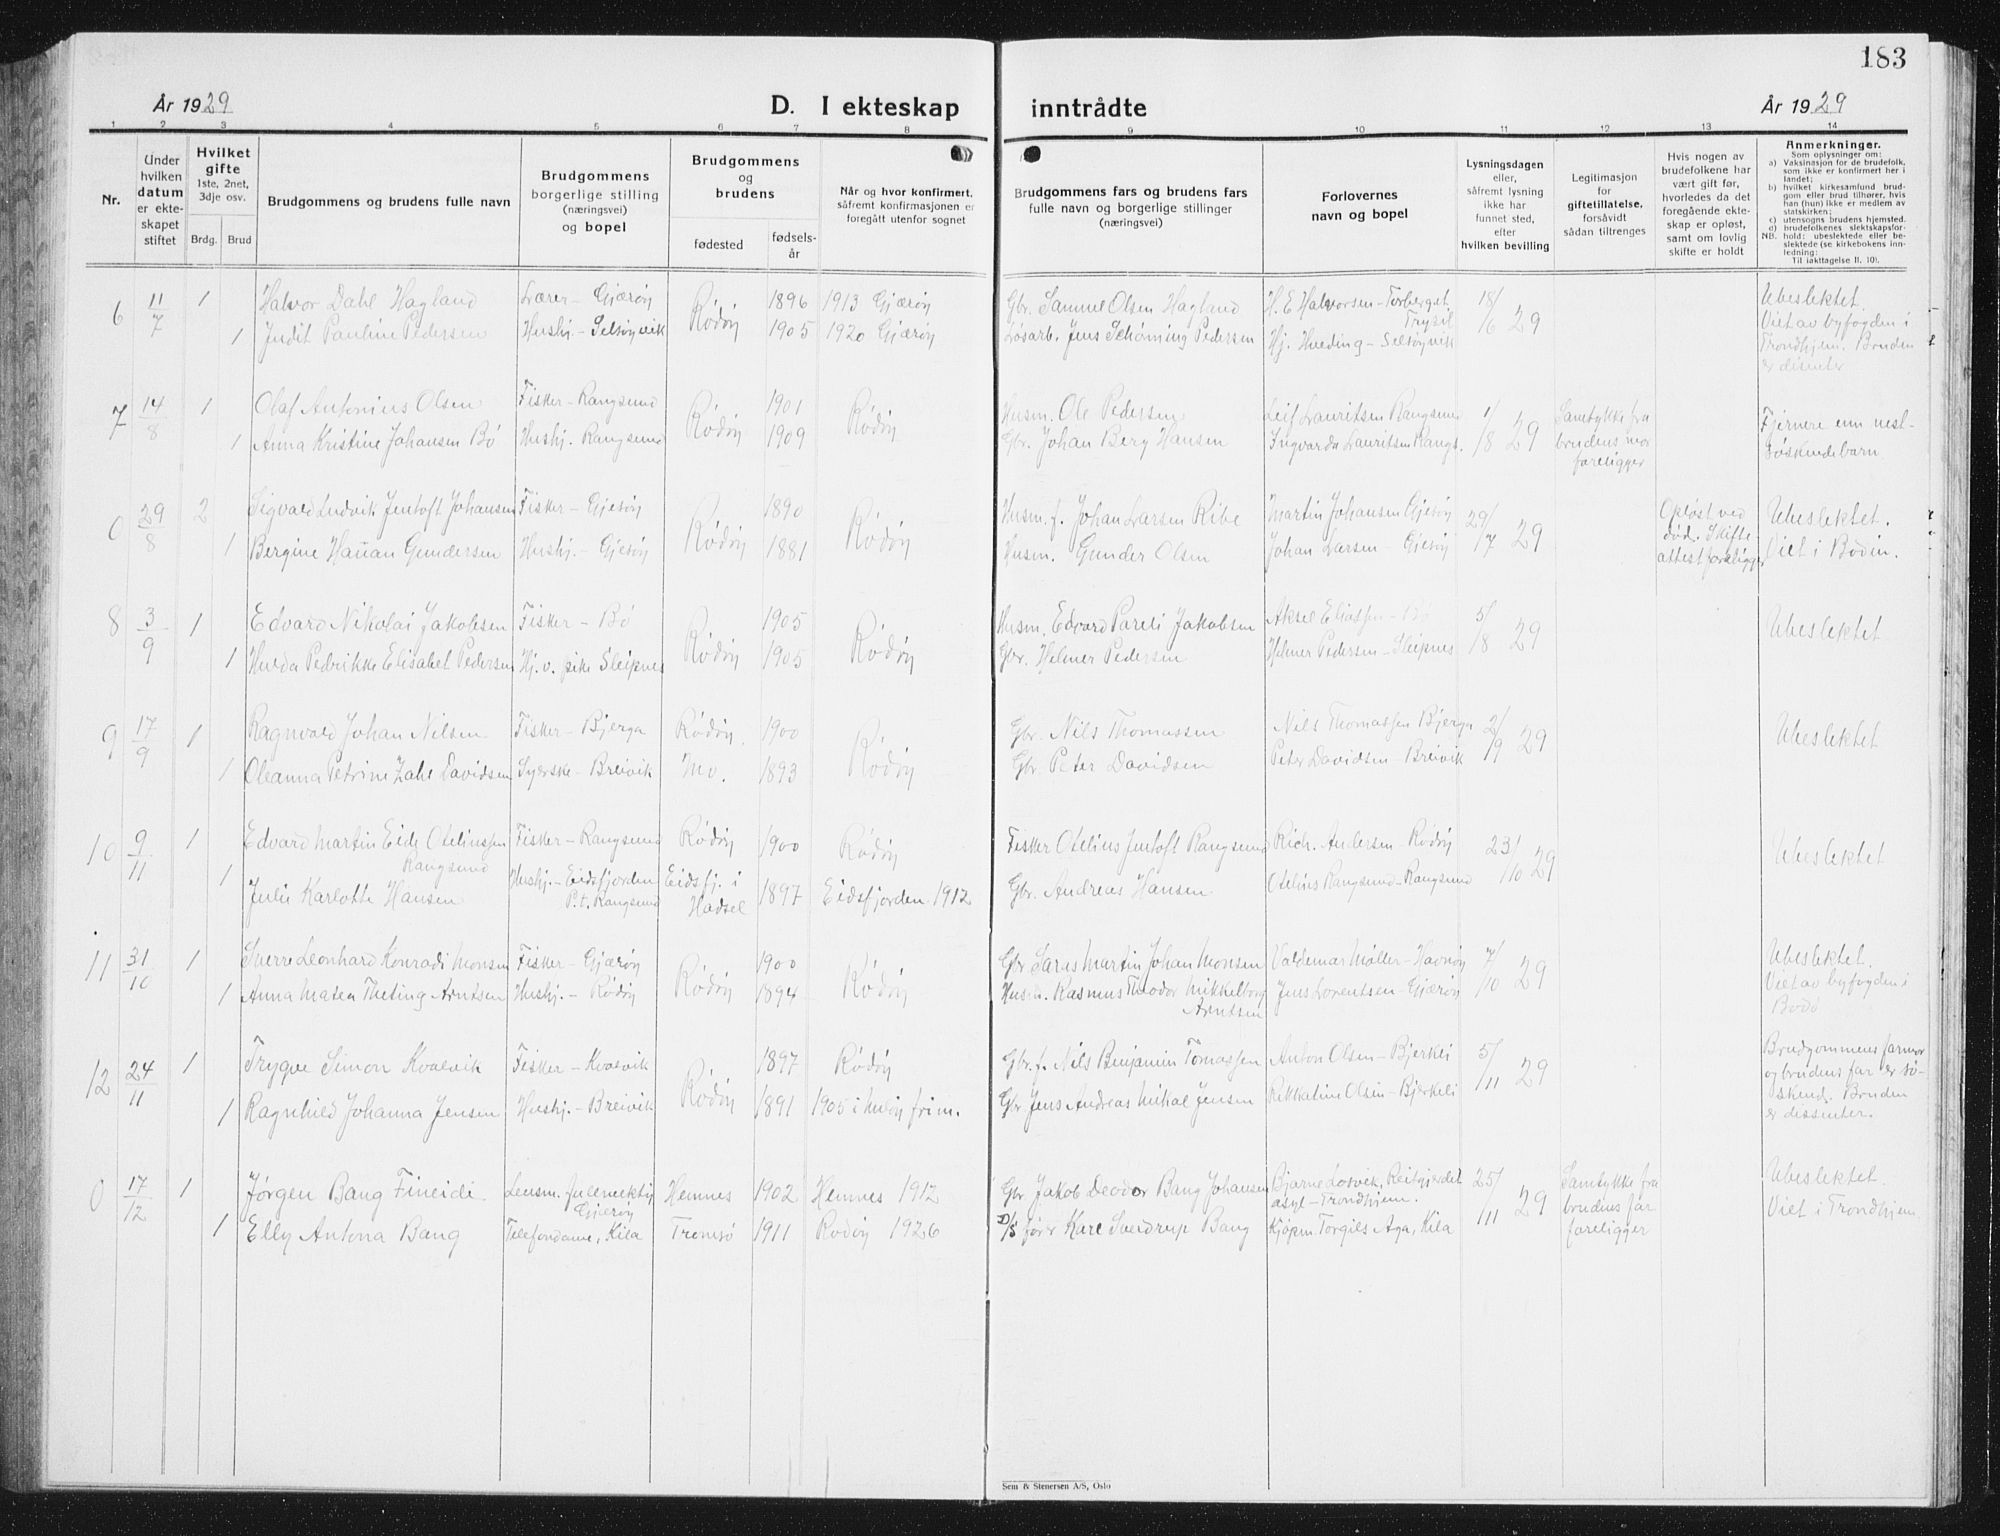 183
År 1929
D. I ekteskap inntrådte
År 1929
1 2 3 4 5 6 7 8 9 10 11 12 13 14
Nr.
Under hvilken datum er ekteskapet stiftet
Hvilket gifte 1ste, 2net, 3dje osv.
Brdg. Brud
Brudgommens og brudens fulle navn
Brudgommens borgerlige stilling (næringsvei) og bopel
Brudgommens og brudens
fødested
fødselsår
Når og hvor konfirmert, såfremt konfirmasjonen er foregått utenfor sognet
Brudgommens fars og brudens fars fulle navn og borgerlige stillinger (næringsvei)
Forlovernes navn og bopel
Lysningsdagen eller, såfremt lysning ikke har funnet sted, efter hvilken bevilling
Legitimasjon for giftetillatelse, forsåvidt sådan tiltrenges
Hvis nogen av brudefolkene har vært gift før, hvorledes da det foregående ekteskap er opløst, samt om lovlig skifte er holdt
Anmerkninger.
Som oplysninger om:
a) Vaksinasjon for de brudefolk, som ikke er konfirmert her i landet;
b) hvilket kirkesamfund brudgom eller brud tilhører, hvis han (hun) ikke er medlem av statskirken;
c) utensogns brudens hjemsted.
d) brudefolkenes slektskapsforhold: ubeslektede eller beslektede (se kirkebokens innledning:
NB.
Til iakttagelse II. 10).
6 11/7 1 Halvor Dahl Hagland Lærer - Gjærøy Rødøy 1896 1913 Gjærøy Gbr. Samuel Olsen Hagland H. E. Halvorsen - Torberget Trysil 18/6 29 Ubeslektet.
1 Judit Pauline Pedersen Hushj. - Selsøyvik 1905 1920 Gjærøy Løsarb. Jens Schønning Pedersen Hj. Hveding - Selsøyvik Viet av byfogden i Trondhjem. Bruden er disenter
7 14/8 1 Olaf Antonius Olsen Fisker - Rangsund Rødøy 1901 Rødøy Husm. Ole Pedersen Leif Lauritsen Rangsund 1/8 29 Samtykke fra brudens mor foreligger Fjernere enn nest-søskendebarn
1 Anna Kristine Johansen Bø Hushj. Rangsund 1909 Gbr. Johan Berg Hansen Ingvarda Lauritsen Rangs.
0 29/8 2 Sigvald Ludvik Jentoft Johansen Fisker - Gjesøy Rødøy 1890 Rødøy Husm. f. Johan Larsen Ribe Martin Johansen Gjesøy 29/7 29 Opløst ved død. Skifteattest foreligger Ubeslektet.
1 Bergine Hauan Gundersen Hushj. - Gjesøy 1881 Husm. Gunder Olsen Johan Larsen - Gjesøy Viet i Bodin.
8 3/9 1 Edvard Nikolai Jakobsen Fisker - Bø Rødøy 1905 Rødøy Husm. Edvard Pareli Jakobsen Aksel Eliassen - Bø 5/8 29 Ubeslektet
1 Hulda Pedrikke Elisabet Pedersen Hj. v. pike Sleipnes 1905 Gbr. Helmer Pedersen Helmer Pedersen - Sleipnes
9 17/9 1 Ragnvald Johan Nilsen Fisker - Bjerga Rødøy 1900 Rødøy Gbr. Nils Thomassen Nils Thomassen Bjerga 2/9 29 Ubeslektet
1 Oleanna Petrine Zahl Davidsen Syerske - Breivik Mo. 1893 Gbr. Peter Davidsen Peter Davidsen - Breivik
10 9/11 1 Edvard Martin Eide Oteliussen Rangsund Fisker - Rangsund Rødøy 1900 Rødøy Fisker Otelius Jentoft Rangsund Rich. Andersen - Rødøy 23/10 29 Ubeslektet
1 Julie Karlotte Hansen Hushj. - Eidsfjorden P.t. Rangsund Eidsfj. i Hadsel 1897 Eidsfjorden 1912 Gbr. Andreas Hansen Otelius Rangsund - Rangsund
11 31/10 1 Sverre Leonhard Konradi Monsen Fisker - Gjærøy Rødøy 1900 Rødøy Gbr. Saras Martin Johan Monsen Valdemar Møller - Havnøy 7/10 29 Ubeslektet.
1 Anna Matea Theting Arntsen Hushj. - Rødøy 1894 Husm. Rasmus Theodor Mikkelborg Arntsen Jens Lorentsen - Gjærøy Viet av byfogden i Bodø
12 24/11 1 Trygve Simon Kvalvik Fisker - Kvalvik Rødøy 1897 Rødøy Gbr. f. Nils Benjamin Tomassen Anton Olsen - Bjerkli 5/11 29 Brudgommens farmor og brudens far er søskend. Bruden er dissenter.
1 Ragnhild Johanna Jensen Hushj. - Breivik 1891 1905 i Meløy frim. Gbr. Jens Andreas Mikal Jensen Rikkaline Olsen - Bjerkeli
0 17/12 1 Jørgen Bang Fineidi Lensm. fullmektig Gjærøy Hemnes 1902 Hemnes 1912 Gbr. Jakob Deodor Bang Johansen Bjarne Lorvik, Reitgjerdet asyl - Trondhjem. 25/11 29 Samtykke fra brudens far foreligger Ubeslektet.
1 Elly Antona Bang Telefondame, Kila Tromsø 1911 Rødøy 1926 D/S fører Karl Sverdrup Bang Kjøpm. Torgils Aga, Kila Viet i Trondhjem
Sem & Stenersen A/S, Oslo